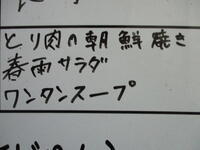 とり肉の朝鮮焼き
春雨サラダ
ワンタンスープ